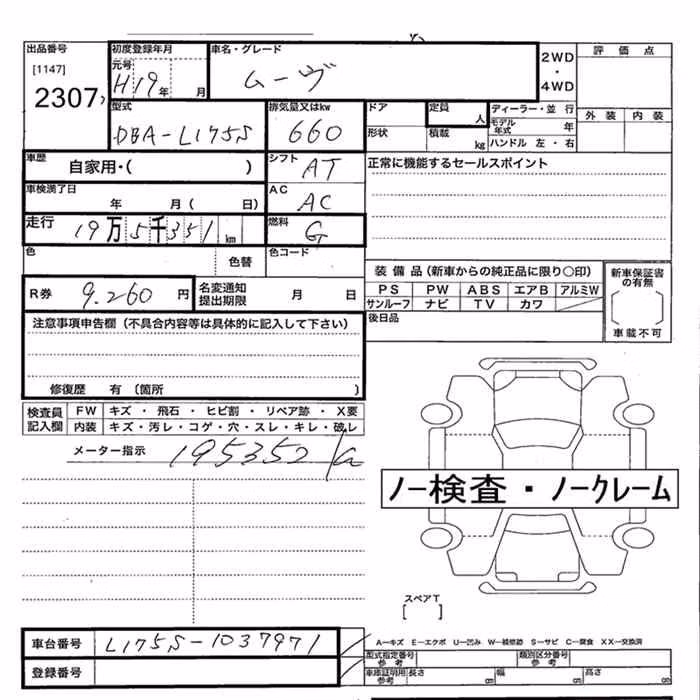 出品番号 初度登録年月 車名・グレード 2WD 評価点
[1147] 元号 ムーヴ ・
2307 H19年 月 4WD
型式 排気量又はkw ドア 定員 人 ディーラー・並行 外装 内装
DBA-L175S 660 形状 積載 kg モデル年式 年
ハンドル 左・右
車歴 自家用・( ) シフト AT 正常に機能するセールスポイント
車検満了日 年 月( 日) AC AC
走行 19万5千351km 燃料 G
色 色替 色コード
装備品(新車からの純正品に限り○印) 新車保証書の有無
R券 9.260円 名変通知提出期限 月 日 PS PW ABS エアB アルミW
サンルーフ ナビ TV カワ
車載不可
注意事項申告欄(不具合内容等は具体的に記入して下さい) 後日品
修復歴 有 〔箇所 〕
検査員記入欄 FW キズ・飛石・ヒビ割・リペア跡・X要
内装 キズ・汚レ・コゲ・穴・スレ・キレ・破レ
メーター指示 195352
ノー検査・ノークレーム
スペアT
[ ]
車台番号 L175S-1037971 A－キズ E－エクボ U－凹み W－補修跡 S－サビ C－腐食 XX－交換済
型式指定番号 参考 類別区分番号 参考
登録番号 車庫証明用 参考 長さ 幅 高さ